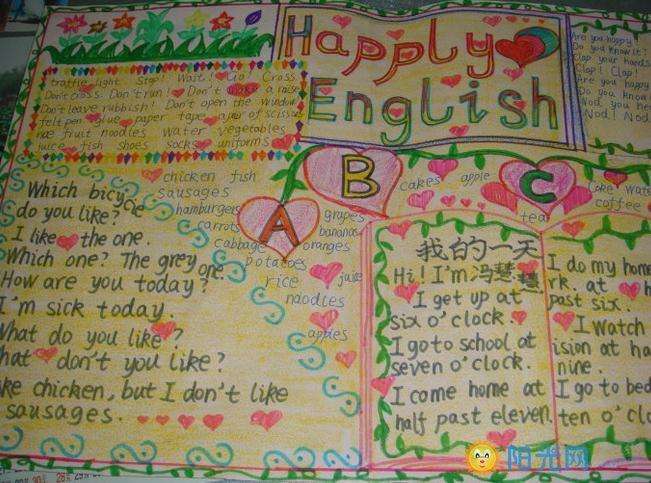 Happly
English
traffic light Stop! Wait! Go! Cross
Don't cross. Don't run! Don't make a noise
Don't leave rubbish! Don't open the window
felt pen glue paper tape a pair of scissors
rice fruit noodles water vegetables
juice fish shoes socks uniforms
Are you happy?
Do you know it!
Clap your hands
Clap! Clap!
Are you happy
Do you know
Nod, you he
Nod! Nod!
A
B
C
chicken fish
sausages
hamburgers
carrots
cabbage
potatoes
rice
noodles
apples
grapes
bananas
oranges
juice
cakes apple
tea
Coke wate
coffee
Which bicycle
do you like?
I like the one.
Which one? The grey one.
How are you today?
I'm sick today.
What do you like?
hat don't you like?
ke chicken, but I don't like
sausages.
我的一天
Hi! I'm 冯慧慧
I get up at
six o'clock.
I go to school at
seven o'clock.
I come home at
half past eleven.
I do my home
rk. at h
past six.
I Watch
ision at ha
nine.
I go to bed
ten o'clo
阳光网